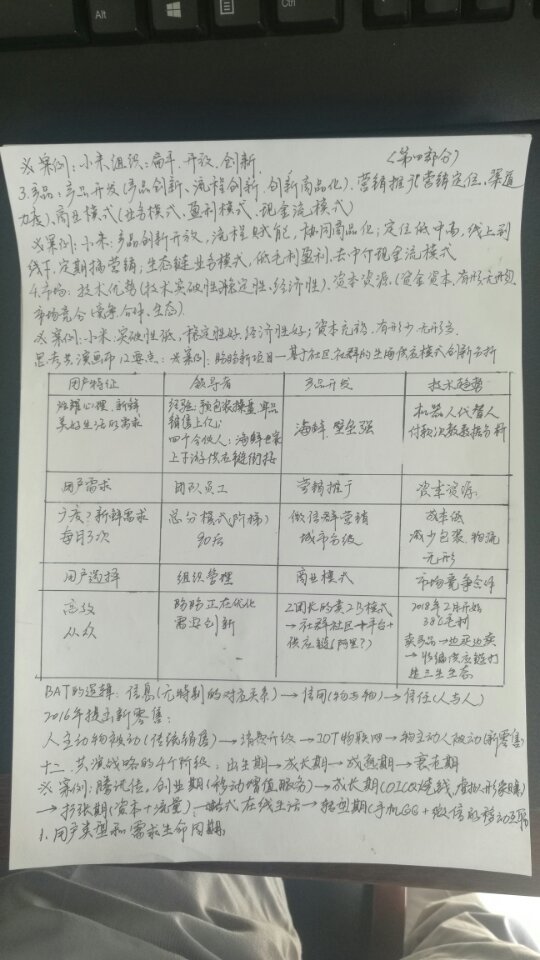 Alt
Ctrl
※案例:小米组织:扁平、开放、创新 〈第四部分〉
3.产品:产品开发(产品创新、流程创新、创新商品化)、营销推广(营销定位、渠道
力度)、商业模式(业务模式、盈利模式、现金流模式)
※案例:小米:产品创新开放,流程赋能,协同商品化;定位低中高,线上到
线下,定期搞营销;生态链业务模式,低毛利盈利,去中介现金流模式
4.市场:技术优势(技术突破性、稳定性、经济性)、资本资源(资金资本、有形无形)、
市场竞合(竞争合作、生态)
※案例:小米:突破性低,稳定性好,经济性好;资本充裕,有形少,无形多
思考共演画布12要点:※案例:盼盼新项目—基于社区社群的生鲜供应模式创新分析
用户特征 领导者 产品开发 技术趋势
炫耀心理、新鲜 经验:预包装操盘,单品 海鲜、壁垒强 机器人代替人
美好生活的需求 销售上亿; 付款次数数据分析
四个合伙人:海鲜世家
上下游供应链衔接
用户需求 团队员工 营销推广 资本资源
广度?新鲜需求 总分模式(阶梯) 微信群营销 成本低
每月3次 90后 城市分级 减少包装、物流
无形
用户选择 组织管理 商业模式 市场竞争合作
高效 盼盼正在优化 Z团长的卖2B模式 2018年2月开始
从众 需要创新 →社群社区→平台+ 38%毛利
供应链(阿里?) 卖产品→边延边卖
→收编供应链打
造三生生态
BAT的逻辑:信息(无特制的对应关系)→信用(物与物)→信任(人与人)
2016年提出新零售:
人主动物被动(传统销售)→消费升级→IOT物联网→物主动人被动(新零售)
十二、共演战略的4个阶段:出生期→成长期→成熟期→衰老期
※案例:腾讯信,创业期(移动增值服务)→成长期(OICQ连线,虚拟形象)
→扩张期(资本+流量),一站式在线生活→转型期(手机QQ+微信的移动互联
1.用户类型和需求生命周期